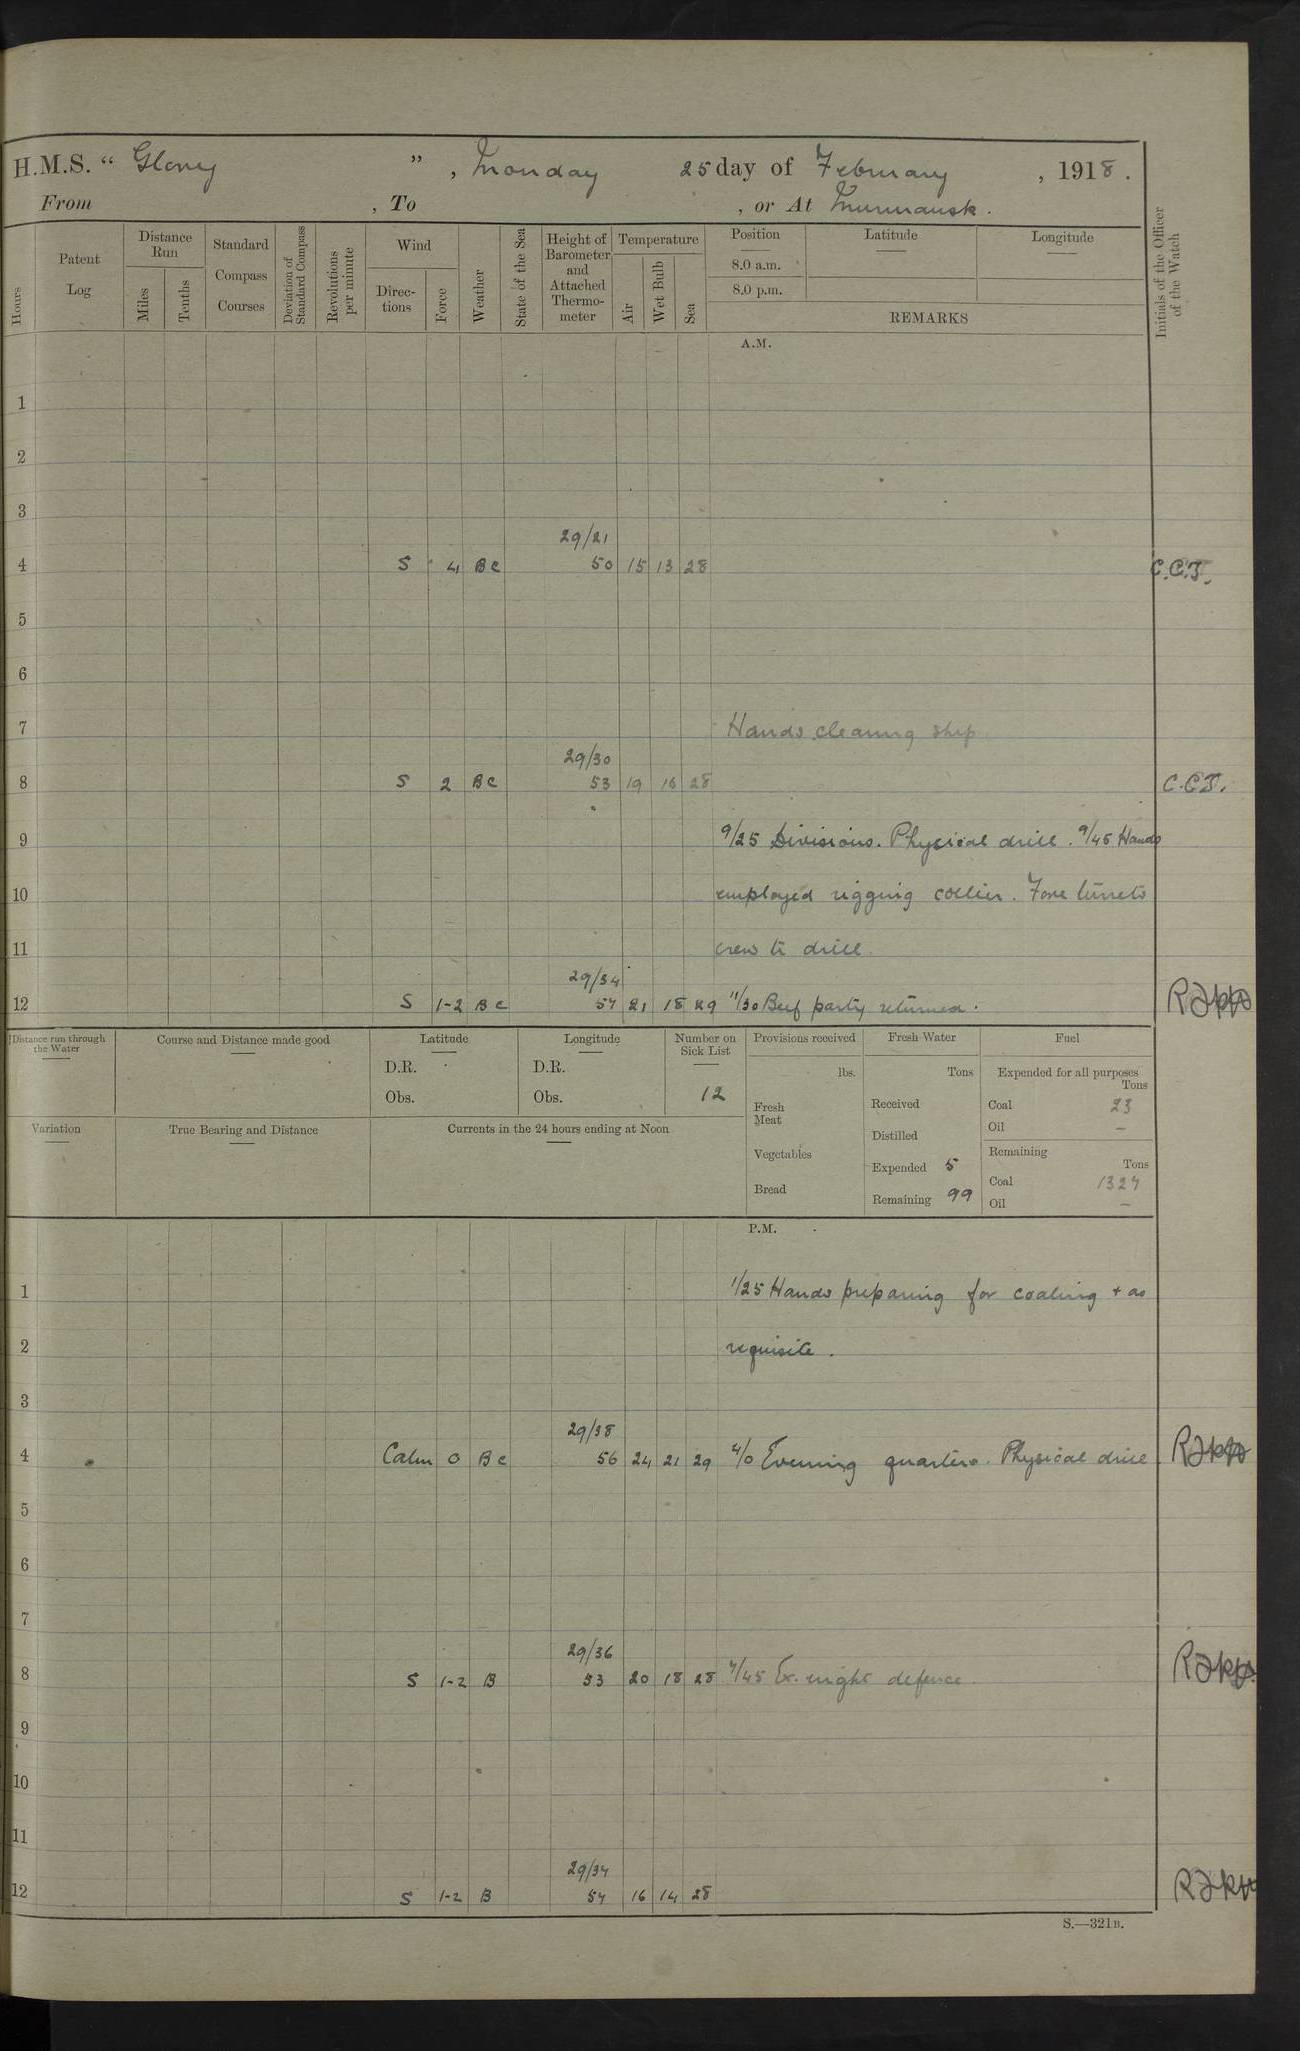 H.M.S. “ Glory ” , Monday 25 day of February , 1918 .
From , To , or At Murmansk .
Hours
Patent Log
Distance Run
Miles
Tenths
Standard Compass Courses
Deviation of Standard Compass
Revolutions per minute
Wind
Direc-tions
Force
Weather
State of the Sea
Height of Barometer and Attached Thermo-meter
Temperature
Air
Wet Bulb
Sea
Position
8.0 a.m.
8.0 p.m.
Latitude
Longitude
REMARKS
Initials of the Officer of the Watch
A.M.
1
2
3
29/21
4 S 4 BC 50 15 13 28 C.C.J.
5
6
7 Hands cleaning ship
29/30
8 S 2 BC 53 19 16 28 C.C.J.
9 9/25 Divisions. Physical drill . 9/45 Hands
10 employed rigging collier . Fore turrets
11 crew to drill .
29/34
12 S 1-2 BC 54 21 18 29 11/30 Beef party returned .
Distance run through the Water
Course and Distance made good
Latitude
D.R.
Obs.
Longitude
D.R.
Obs.
Number on Sick List
12
Provisions received
lbs.
Fresh Meat
Vegetables
Bread
Fresh Water
Tons
Received
Distilled
Expended 5
Remaining 99
Fuel
Expended for all purposes
Tons
Coal 23
Oil —
Remaining
Tons
Coal 1327
Oil —
Variation
True Bearing and Distance
Currents in the 24 hours ending at Noon
P.M.
1 1/25 Hands preparing for coaling + as
2 requisite .
3
29/38
4 Calm 0 BC 56 24 21 29 4/0 Evening quarters . Physical drill .
5
6
7
29/36
8 S 1-2 B 53 20 18 28 7/45 Ex. night defence .
9
10
11
29/34
12 S 1-2 B 54 16 14 28
S.—321B.